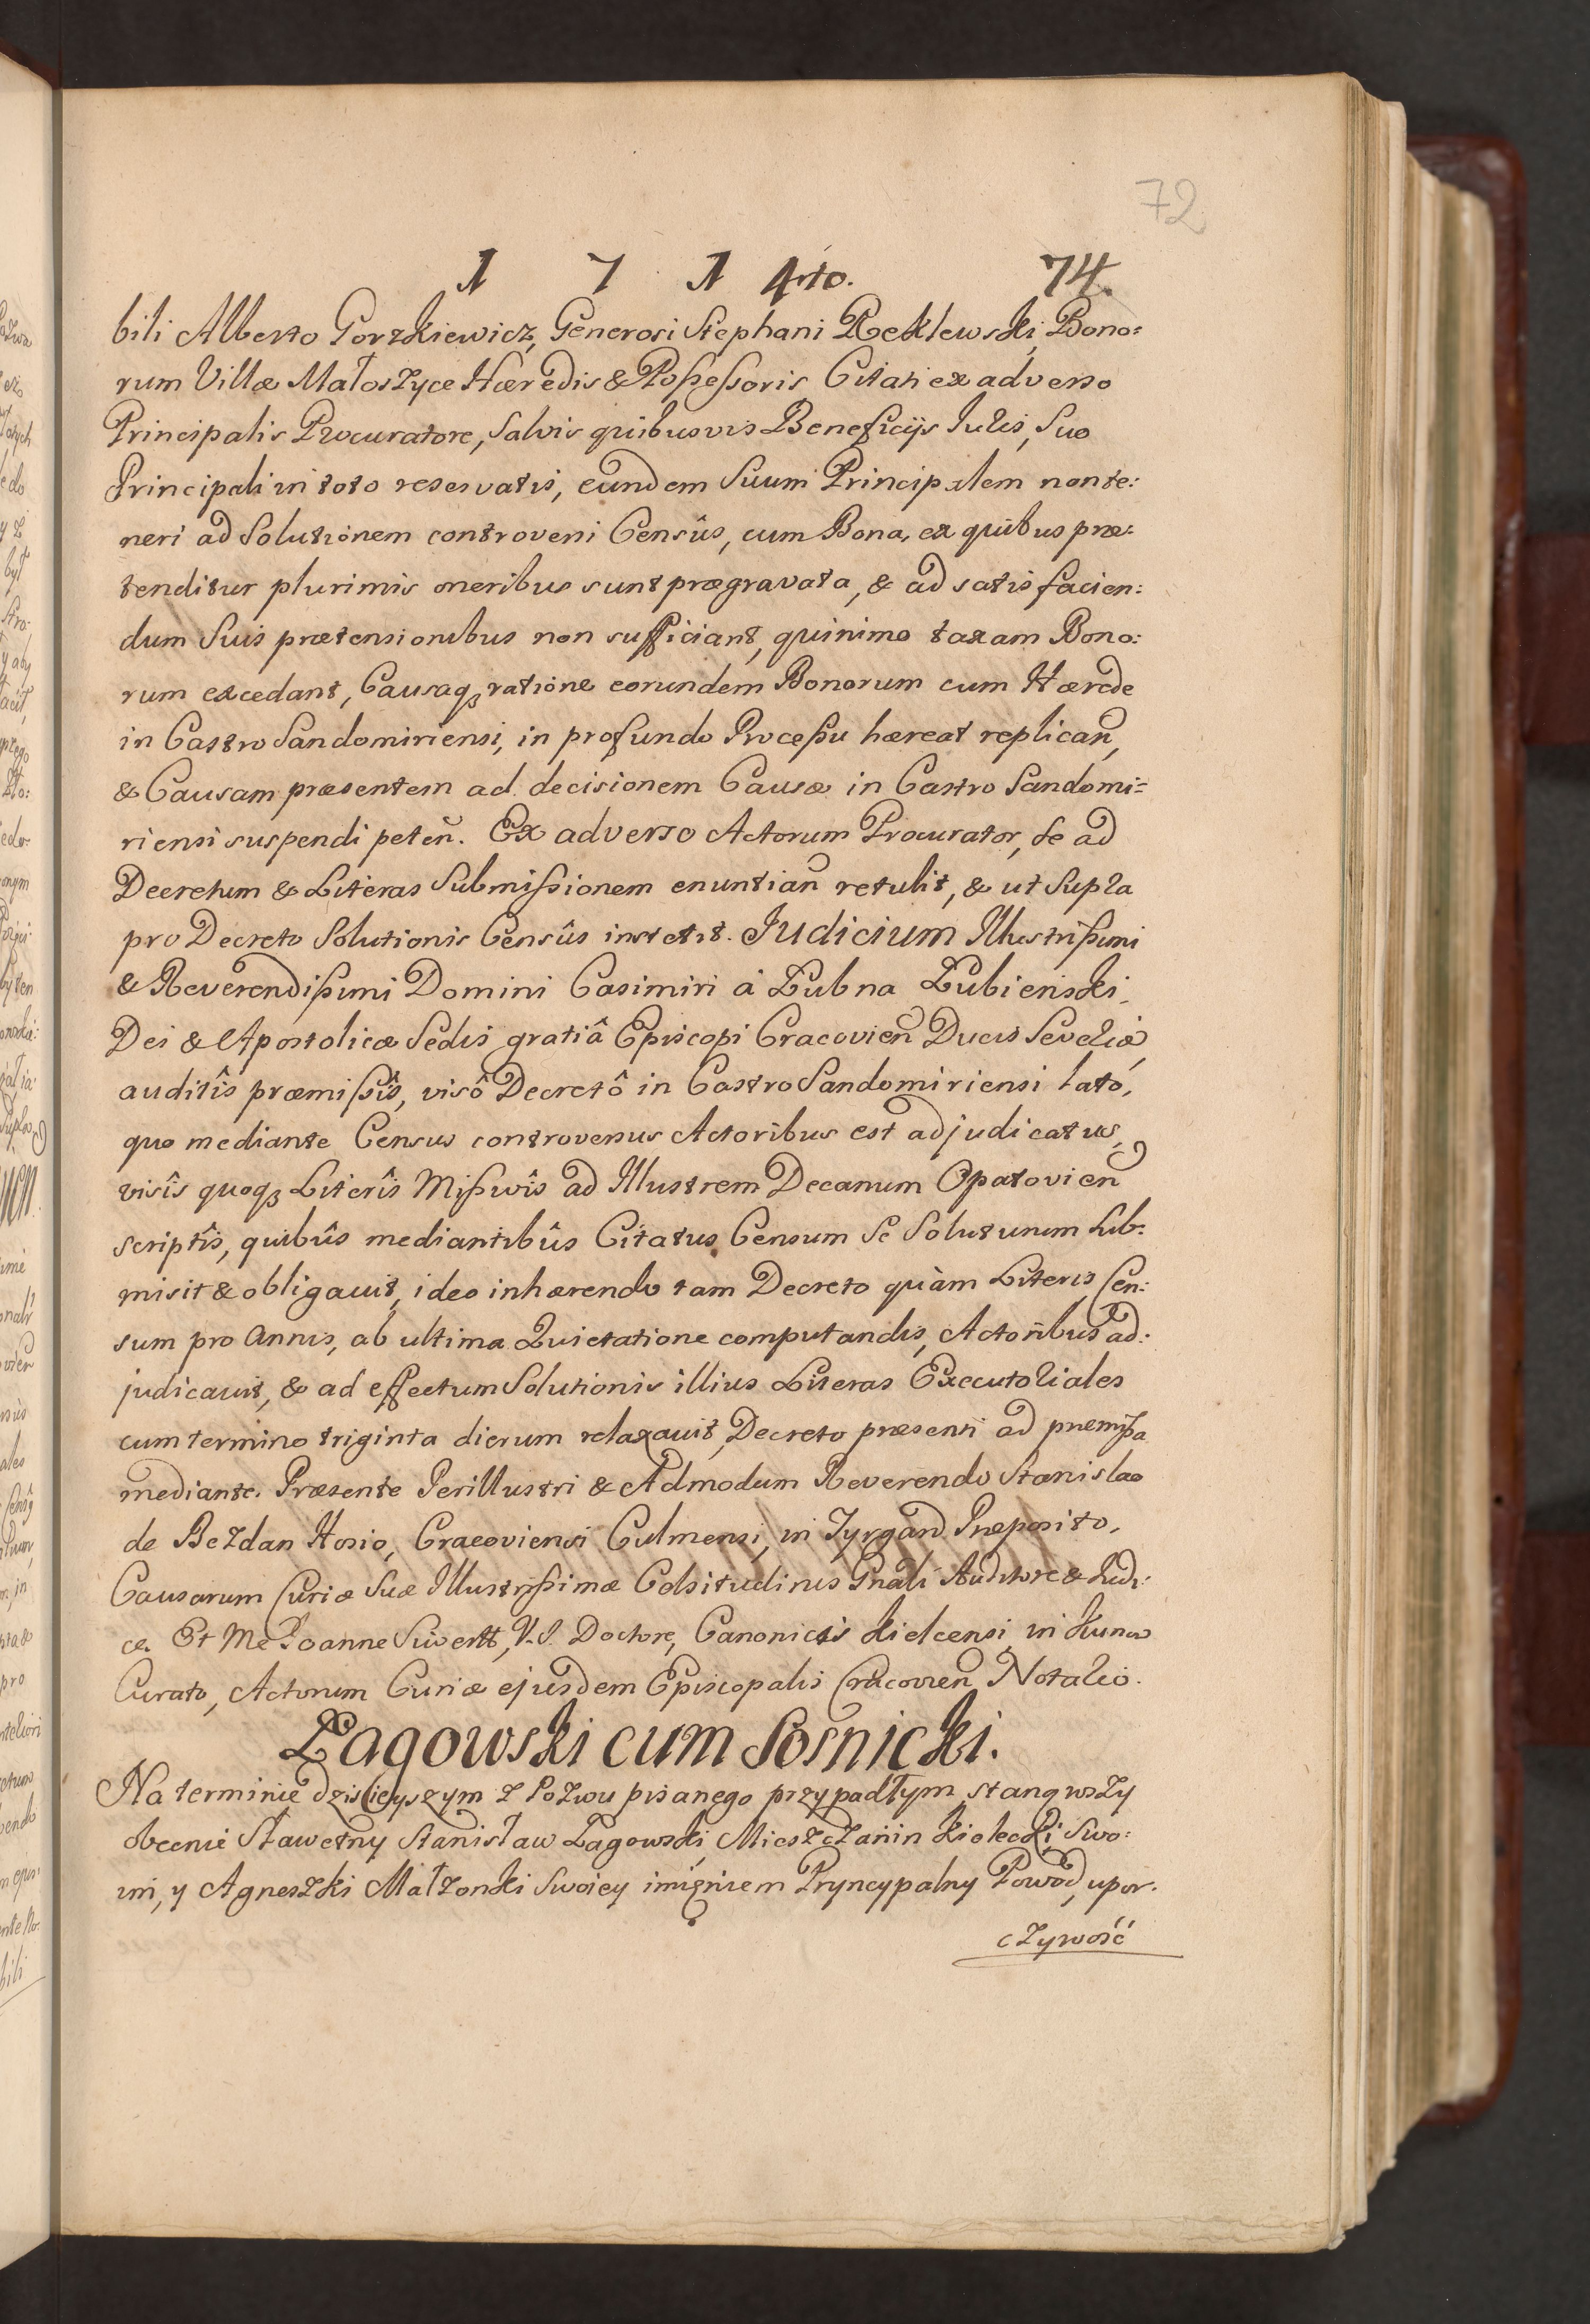 72
1 7 1 4to. 74.
bili Alberto Gorzkiewicz, Generosi Stephani Reklewski, Bono:
rum Villæ Małoszyce Hæredis & Possessoris Citati ex adverso
Principalis Procuratore, Salvis quibusvis Beneficijs Iuris, Suo
Principali in toto reservatis, eundem Suum Principalem non te:
neri ad Solutionem controversi Censûs, cum Bona, ex quibus præ:
tenditur plurimis oneribus sunt prægravata, & ad satisfacien:
dum Suis prætensionibus non sufficiant, quinimo taxam Bono:
rum excedant, Causaqz ratione eorundem Bonorum cum Hærede
in Castro Sandomiriensi, in profundo Processu hæreat replicañ,
& Causam præsentem ad decisionem Causæ in Castro Sandomi=
riensi suspendi peteñ. Ex adverso Actorum Procurator, Se ad
Decretum & Literas Submissionem enuntiañ retulit, & ut Supra
pro Decreto Solutionis Censûs institit. Judicium Illustrissimi
& Reverendissimi Domini Casimiri à Łubna Łubieński,
Dei & Apostolicæ Sedis gratiâ Episcopi Cracovieñ Ducis Severiæ,
auditîs præmissîs, visô Decretô in Castro Sandomiriensi lato,
quo mediante Census controversus Actoribus est adjudicatus,
visîs quoqz Literîs Missivîs ad Illustrem Decanum Opatovieñ
scriptîs, quibûs mediantibûs Citatus Censum Se Soluturum Sub:
misit & obligavit, ideo inhærendo tam Decreto quàm Literis, Cen:
sum pro Annis, ab ultima Quietatione computandis, Actoribus ad:
judicavit, & ad effectum Solutionis illius Literas Executoriales
cum termino triginta dierum relaxavit, Decreto præsenti ad præmissa
mediante. Præsente Perillustri & Admodum Reverendo Stanislao
de Bezdan Hosio, Cracoviensi Culmensi, in Tyrgard Præposito,
Causarum Curiæ Suæ Illustrissimæ Celsitudinis Gnali Auditore & Judi:
ce. Et Me Joanne Siwertt, V.J. Doctore, Canonicis Kielcensi, in Kunow
Curato, Actorum Curiæ ejusdem Episcopalis Cracovien Notario.
Łagowski cum Sosnicki.
Na terminie dzisieyszym z Pozwu pisanego przypadłym, stanąwszy
obecnie Sławetny Stanisław Łagowski, Mieszczanin Kielecki Swo:
im, y Agneszki Małżonki Swoiey imięniem Pryncypalny Powod, upor.
czywość